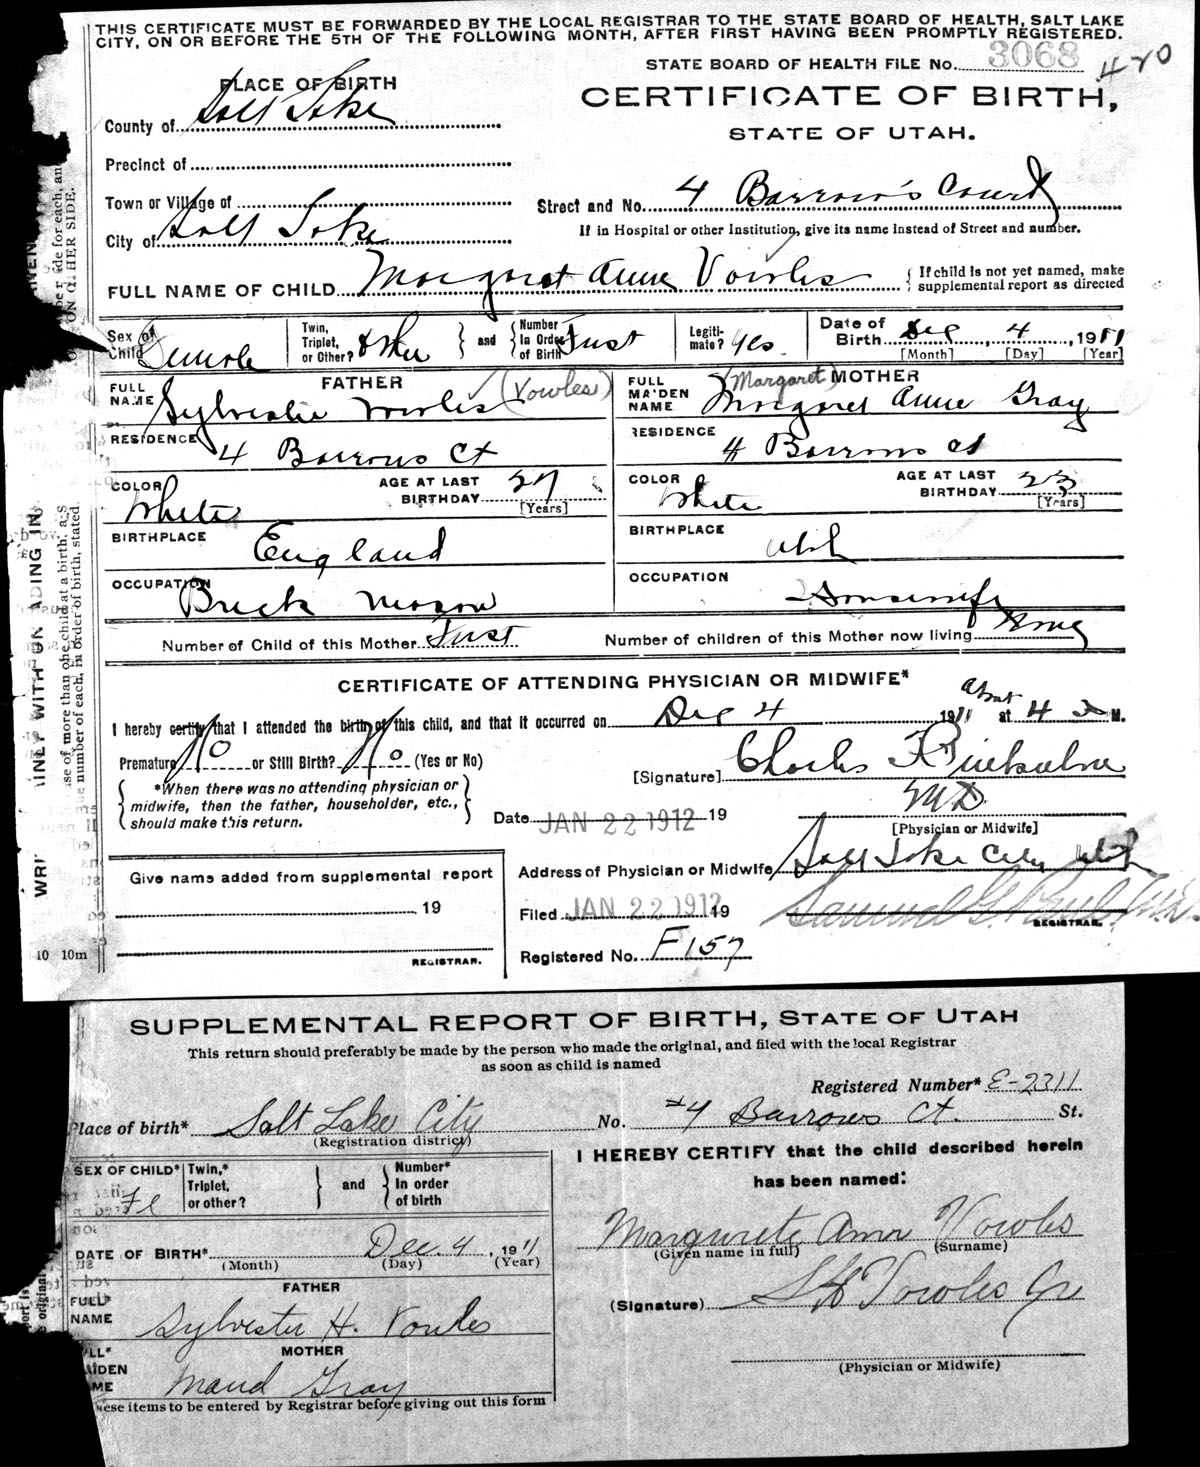 THIS CERTIFICATE MUST BE FORWARDED BY THE LOCAL REGISTRAR TO THE STATE BOARD OF HEALTH, SALT LAKE
CITY, ON OR BEFORE THE 5TH OF THE FOLLOWING MONTH, AFTER FIRST HAVING BEEN PROMPTLY REGISTERED.
STATE BOARD OF HEALTH FILE No. 3068 420
PLACE OF BIRTH
CERTIFICATE OF BIRTH,
County of Salt Lake
STATE OF UTAH.
Precinct of
Town or Village of
Street and No. 4 Barrow's Court
City of Salt Lake
If in Hospital or other Institution, give its name instead of Street and number.
FULL NAME OF CHILD Margaret Anne Vowles
{ If child is not yet named, make supplemental report as directed
Sex of Child Female
Twin, Triplet, or Other? } and { Number In Order of Birth First
Legitimate? yes
Date of Birth Dec, 4, 1911
[Month] [Day] [Year]
FATHER
FULL NAME Sylvester Vowles (Vowles)
(Margaret) MOTHER
FULL MAIDEN NAME Margaret Anne Gray
RESIDENCE 4 Barrows Ct
RESIDENCE 4 Barrows Ct
COLOR White AGE AT LAST BIRTHDAY 27 [Years]
COLOR White AGE AT LAST BIRTHDAY 23 [Years]
BIRTHPLACE England
BIRTHPLACE Utah
OCCUPATION Brick Mason
OCCUPATION Housewife
Number of Child of this Mother First
Number of children of this Mother now living
CERTIFICATE OF ATTENDING PHYSICIAN OR MIDWIFE*
I hereby certify that I attended the birth of this child, and that it occurred on Dec 4 1911 about at 4 M.
Premature No or Still Birth? No (Yes or No)
[Signature] Charles F
{ *When there was no attending physician or midwife, then the father, householder, etc., should make this return. }
MD
Date JAN 22 1912 19
[Physician or Midwife]
Give name added from supplemental report
Address of Physician or Midwife Salt Lake City Utah
19
Filed JAN 22 1912 19
Samuel G. Paul, M.D.
REGISTRAR.
REGISTRAR.
Registered No. F157
10 10m
SUPPLEMENTAL REPORT OF BIRTH, STATE OF UTAH
This return should preferably be made by the person who made the original, and filed with the local Registrar
as soon as child is named
Registered Number* E-2311
Place of birth* Salt Lake City
(Registration district)
No. #4 Barrows Ct. St.
SEX OF CHILD* Fe
Twin,* Triplet, or other? } and { Number* In order of birth
I HEREBY CERTIFY that the child described herein
has been named:
Margurete Ann Vowles
(Given name in full) (Surname)
DATE OF BIRTH* Dec. 4, 1911
(Month) (Day) (Year)
FATHER
FULL* NAME Sylvester H. Vowles
(Signature) S H Vowles Jr
MOTHER
Maud Gray
(Physician or Midwife)
these items to be entered by Registrar before giving out this form